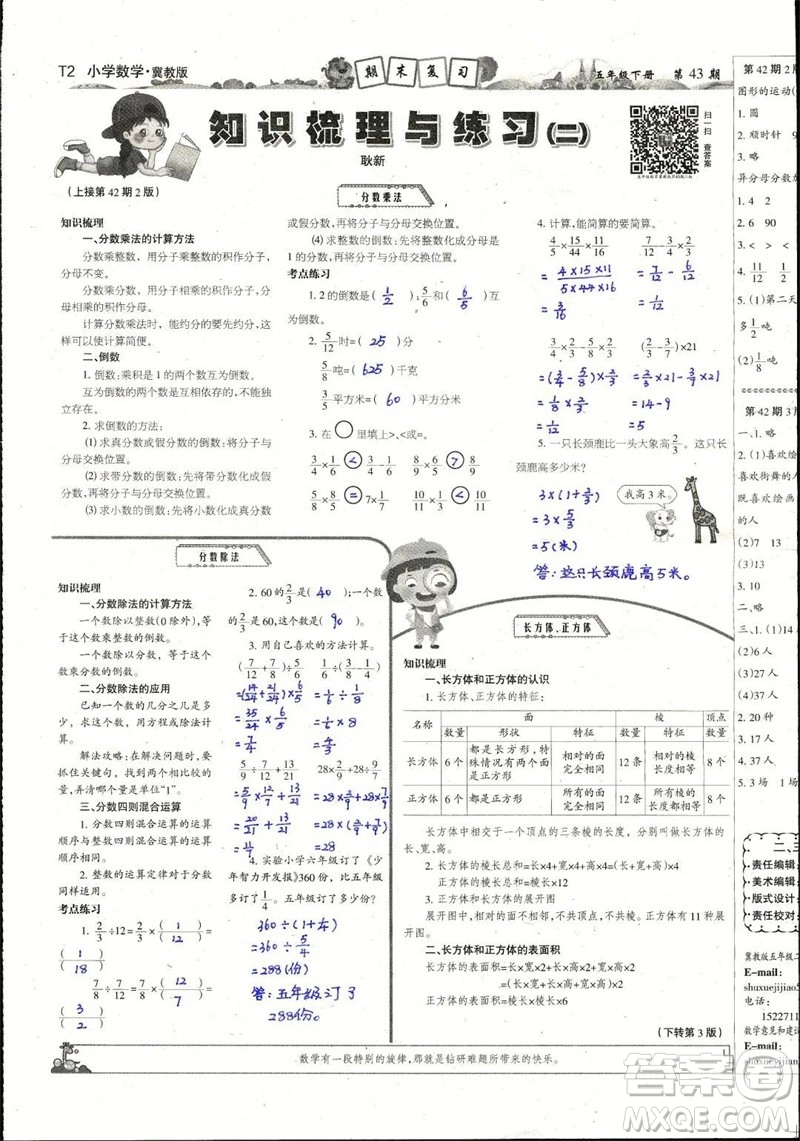 T2 小学数学·冀教版
期末复习
五年级下册 第43期
知识梳理与练习(二)
耿新
扫一扫 查答案
(上接第42期2版)
分数乘法
知识梳理
一、分数乘法的计算方法
分数乘整数,用分子与整数的乘积作分子,
分母不变。
分数乘分数,用分子相乘的积作分子,分
母相乘的积作分母。
计算分数乘法时,能约分的要先约分,这
样可以使计算简便。
二、倒数
1. 倒数:乘积是1的两个数互为倒数。
互为倒数的两个数是相互依存的,不能独
立存在。
2. 求倒数的方法:
(1) 求真分数或假分数的倒数:将分子与
分母交换位置。
(2) 求带分数的倒数:先将带分数化成假
分数,再将分子与分母交换位置。
(3) 求小数的倒数:先将小数化成真分数
或假分数,再将分子与分母交换位置。
(4) 求整数的倒数:先将整数化成分母是
1的分数,再将分子与分母交换位置。
考点练习
1. 2的倒数是( 1/2 ), 5/6和( 6/5 )互
为倒数。
2. 5/12时=( 25 )分
5/8吨=( 625 )千克
3/5平方米=( 60 )平方分米
3. 在○里填上>、<或=。
3/4×1/6 < 3/4 4/9 < 4/9×3/2
5/8×7 = 7×5/8 9/10×10/11 < 10/11
4. 计算,能简算的要简算。
4/5×15/44×11/16
= 4×15×11/5×44×16
= 3/16
7/12-1/4×2/3
= 7/12 - 1/6
(3/4-5/8)×2/3
= (3/4-5/8)×2/3
= 1/8×2/3
= 1/12
(2/3-3/7)×21
= 2/3×21-3/7×21
= 14-9
5. 一只长颈鹿比一头大象高2/3。这只长
颈鹿高多少米?
我高3米。
3×(1+2/3)
= 3×5/3
= 5(米)
答:这只长颈鹿高5米。
分数除法
知识梳理
一、分数除法的计算方法
一个数除以整数(0除外),等于这个数乘
这个数乘整数的倒数。
一个数除以分数,等于这个数乘这个分
数的倒数。
二、分数除法的应用
已知一个数的几分之几是多少,
求这个数用方程或除法计算。
解法攻略:在解决问题时,要
抓住关键句,找到两个相比的量,
弄清哪个量是单位“1”。
三、分数四则混合运算
1. 分数四则混合运算的运算
顺序与整数的运算顺序相同。
2. 整数的运算定律对于分数
同样适用。
考点练习
1. 2/3÷12=2/3×( 1/12 )=
( 1/18 )
7/8÷7/12=7/8×( 12/7 )=
( 3/2 )
2. 60的2/3是( 40 );一个数
的2/3是60,这个数是( 90 )。
3. 用自己喜欢的方法计算。
(7/12+7/8)÷5/6
= (14/24+21/24)×6/5
= 35/24×6/5
= 7/4
= 1/6÷1/8
= 1/6×8
= 4/3
5/9÷7/12×7/13
= 5/9×12/7×7/13
= 20/21×7/13
28×2/9+28÷9/7
= 28×2/9+28×7/9
= 28×1
= 28
4. 实验小学六年级订了《少
年智力开发报》360份,比五年级
多订了1/4。五年级订了多少份?
360÷(1+1/4)
= 360÷5/4
= 288(份)
答:五年级订了
288份。
长方体、正方体
知识梳理
一、长方体和正方体的认识
1. 长方体、正方体的特征:
名称 面 棱 顶点
数量 形状 特征 数量 特征 数量
长方体 6个 都是长方形,特殊情况有两个面是正方形 相对的面完全相同 12条 相对的棱长度相等 8个
正方体 6个 都是正方形 所有的面完全相同 12条 所有的棱长度相等 8个
长方体中相交于一个顶点的三条棱的长度,分别叫做长方体的
长、宽、高。
2. 长方体的棱长总和=(长+宽+高)×4
正方体的棱长总和=棱长×12
3. 长方体和正方体的展开图
展开图中,相对的面不相邻,不共顶点,不共棱。正方体有11种展
开图。
二、长方体和正方体的表面积
长方体的表面积=长×宽×2+长×高×2+宽×高×2
=(长×宽+长×高+宽×高)×2
正方体的表面积=棱长×棱长×6
(下转第3版)
数学有一段特别的旋律,那就是钻研难题所带来的快乐。
第42期2版
图形的运动(
1. 圆
2. 顺时针
3. 略
异分母分数
1. 略
2. 6 90
3. 略
5. (1) 第二天
3/8吨
(2) 1/8吨
第42期3版
一、1. 略
2. (1) 喜欢
喜欢街舞的人
既喜欢
的人
(2) 7 13
(3) 13
3. 10
二、1. (1) 14
(2) 27人
(3) 41人
(4) 37人
2. 20种
3. 17人
4. 37人
5. 3场 1场
二、三
责任编辑:
美术编辑:
版式设计:
责任校对:
冀教版五年级二
E-mail:
shuxuejijiao5
电话:
1522711
数学意见和建议
E-mail:
shuxueyijian
答案圈
MXQE.COM